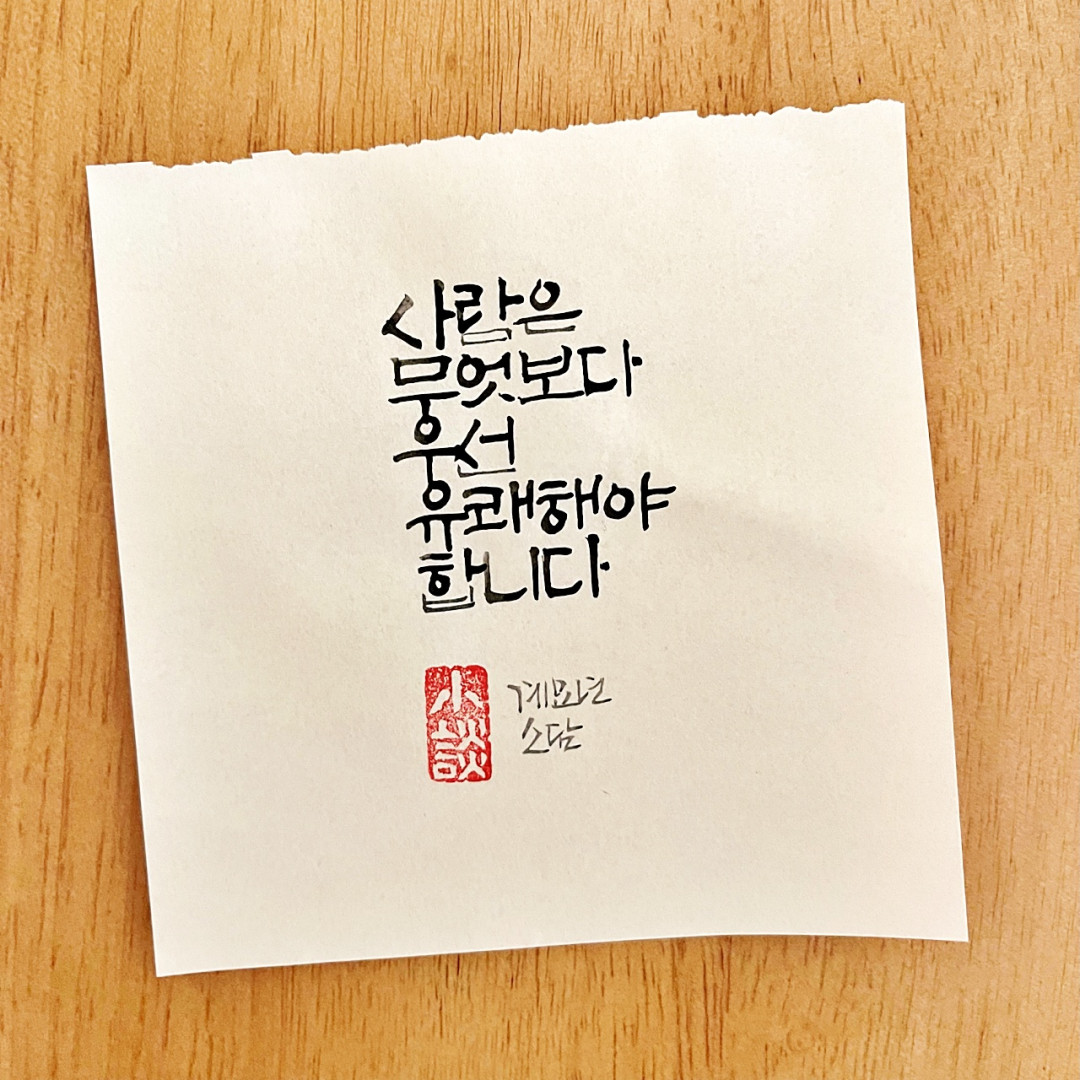 사람은
무엇보다
우선
유쾌해야
합니다
小談
계묘년
소담